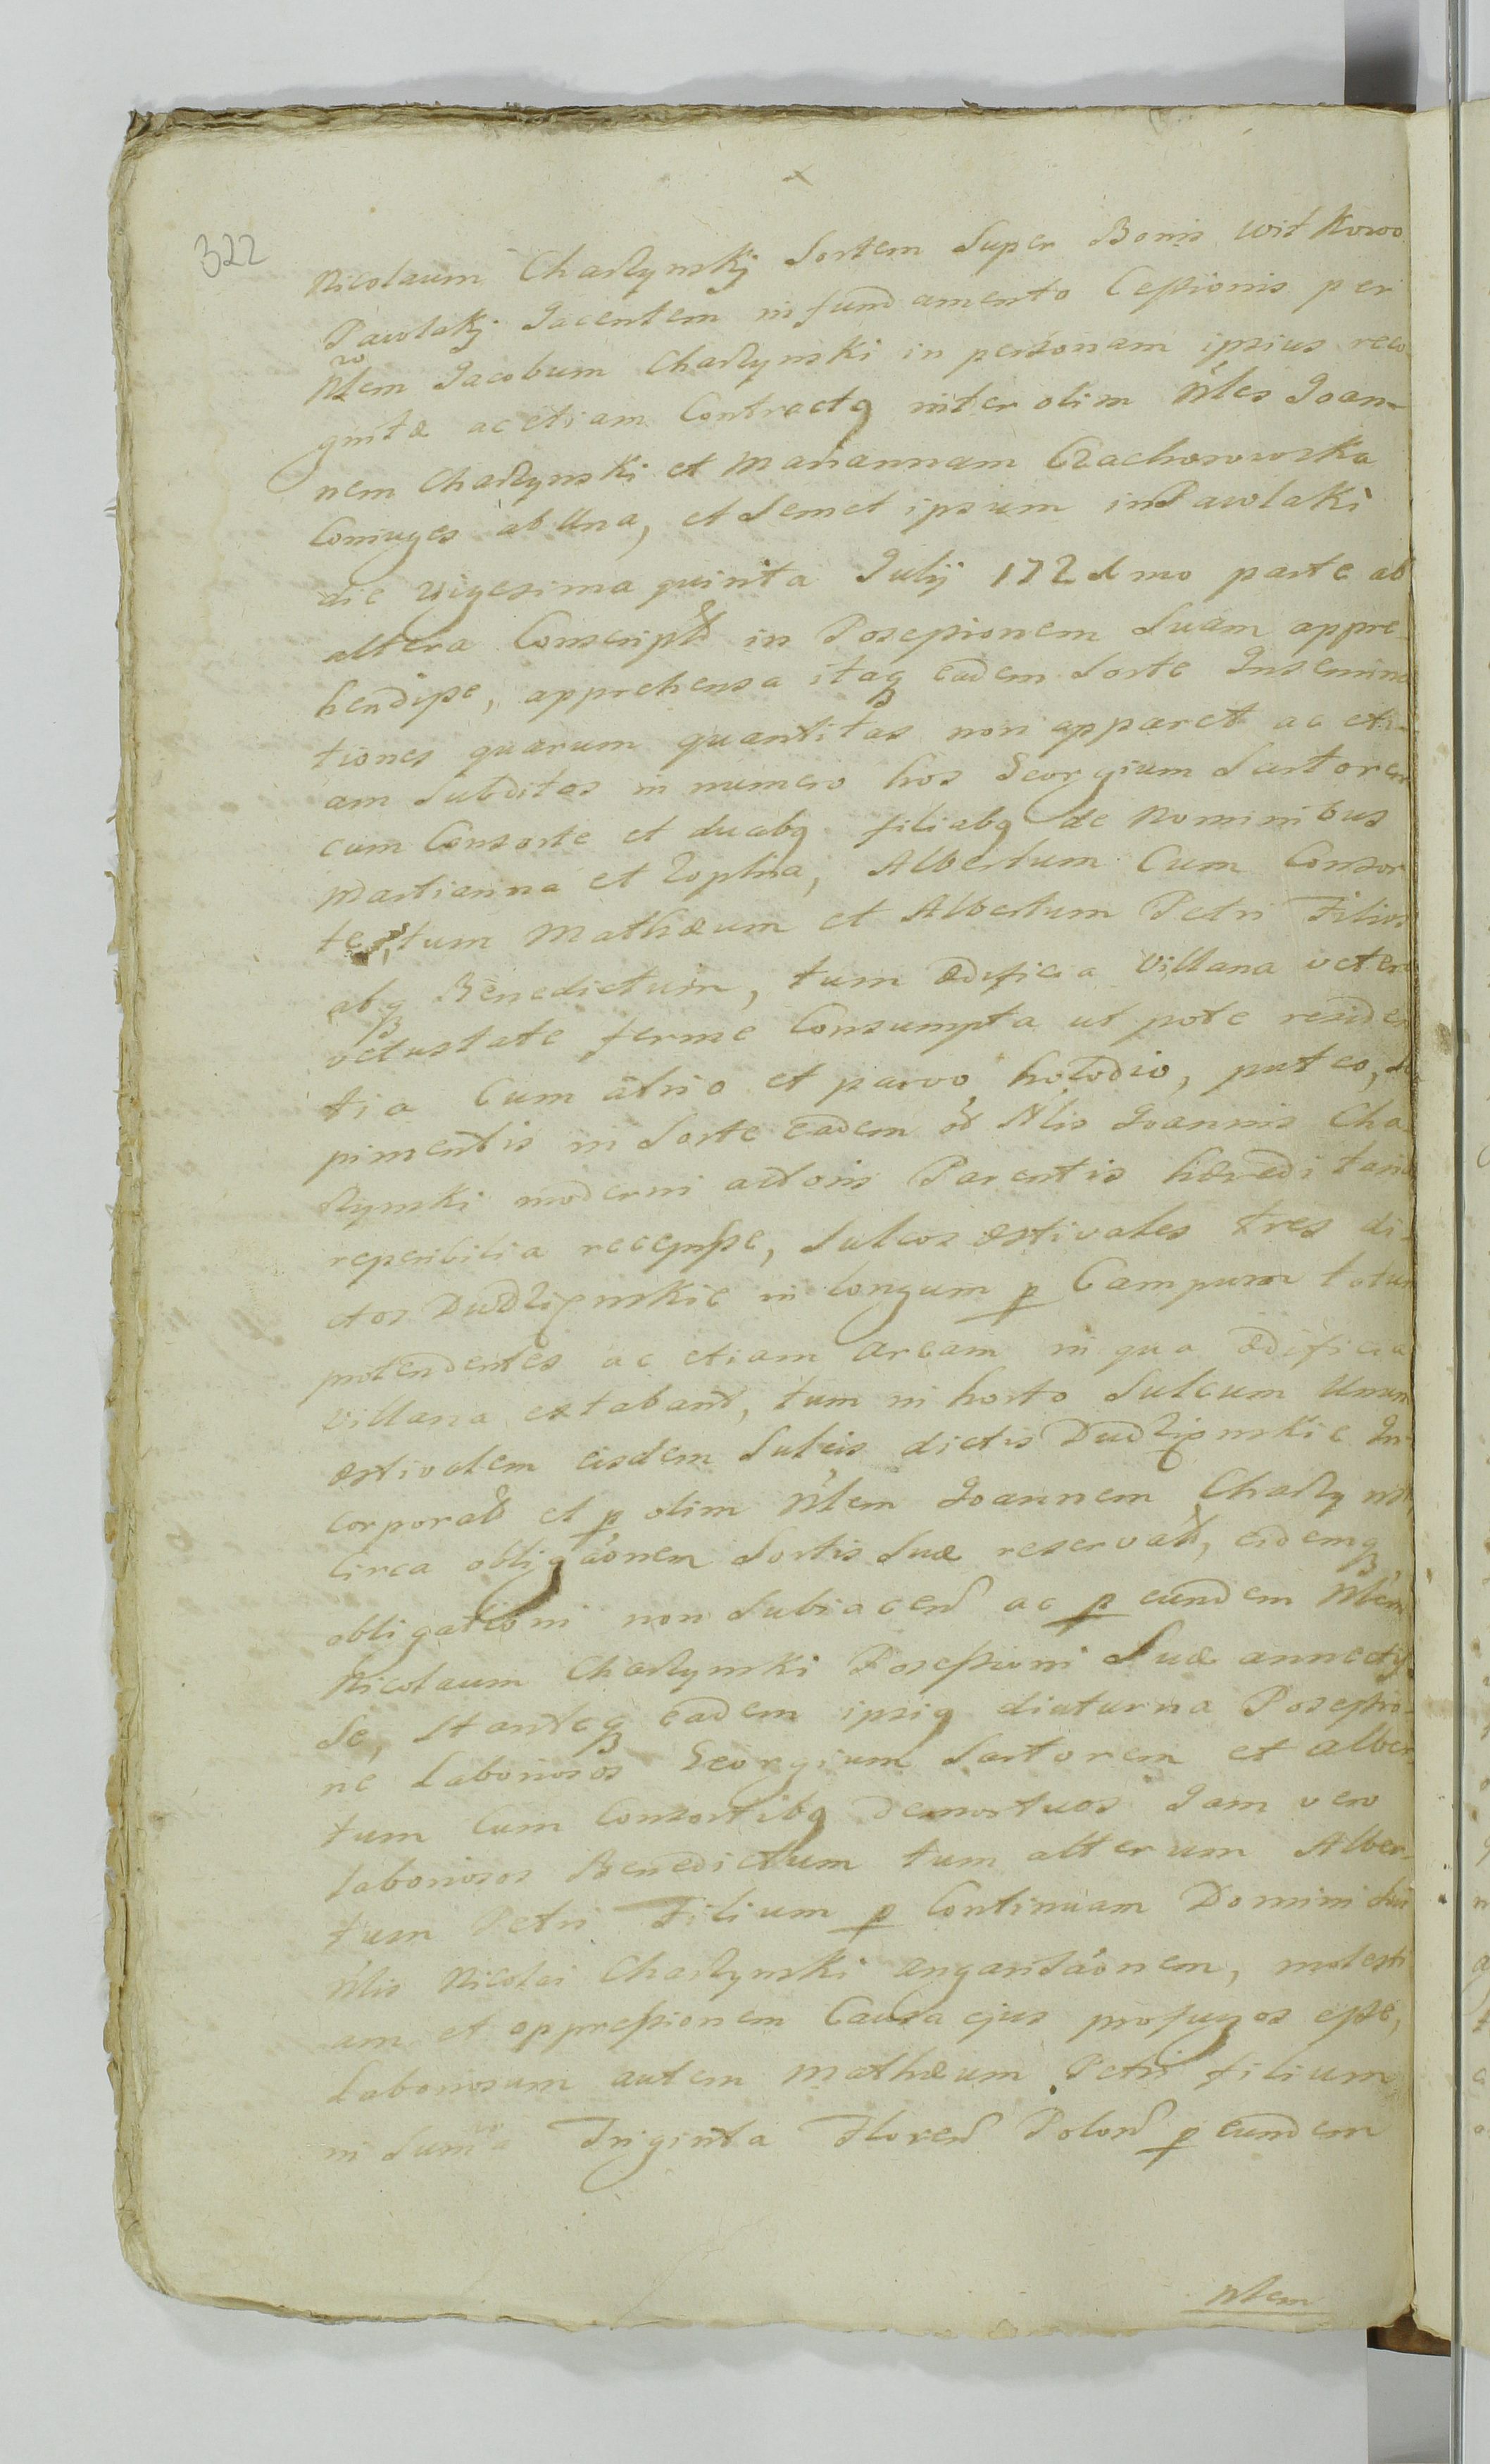 322
Nicolaum Charzynskj Sortem Super Bonis Witkowo
Pawlakj Jacentem in fundamento Cessionis per
Nlem Jacobum Charzynski in personam ipsius reco
gnitæ ac etiam Contractq inter olim Nles Joan-
nem Charzynski et Mariannam Czachorowska
Coniuges ab Una, et Semet ipsum in Pawlaki
die vigesima quinta Julij 172dmo parte ab
altera Conscript in Possessionem Suam appre-
hendisse, apprehensa itaq eadem Sorte Insemina
tiones quarum quantitas non apparet ac eti-
am Subditos in numero hos Georgium Sartorem
cum Consorte et duabq filiabq de Nominibus
Martianna et Zophia, Albertum Cum Consor
te, tum Mathæum et Albertum Petri Filios
abq Benedictum, tum ædificia Villana vetere
vetustate ferme Consumpta ut pote residen
tia Cum atrio et parvo hipodio, puteo,
pimentis in Sorte eadem Nlis Joannis Cha
rzynski moderni actoris Parentis hæreditaria
reperibilia recepisse, Sulcos æstivales tres di-
ctos Dudzięnskie in longum p Campum totum
protendentes ac etiam aream in qua ædificia
villana extabant, tum in horto Sulcum Unum
æstivalem eisdem Sulcis dictis Dudzięnskie In-
corporat et p olim Nlem Joannem Charzynsk
Circa obligaōnem Sortis Suæ reservat, eidemq
obligationi non Subiacen ac p eundem Nlem
Nicolaum Charzynski Possessioni Suæ annectis
se, Stanteq eadem ipsiq diuturna Possessio-
ne Laboriosos Georgium Sartorem et Alber
tum Cum Consortibq demortuos Jam vero
Laboriosos Benedictum tum alterum Alber-
tum Petri Filium p Continuam Domini Sui
Nlis Nicolai Charzynski angarisaōnem, molesti
am et oppressionem Causa ejus profugos esse,
Laboriosum autem Mathæum Petri filium
in Summa Triginta Floren Polon p eundem
Nlem